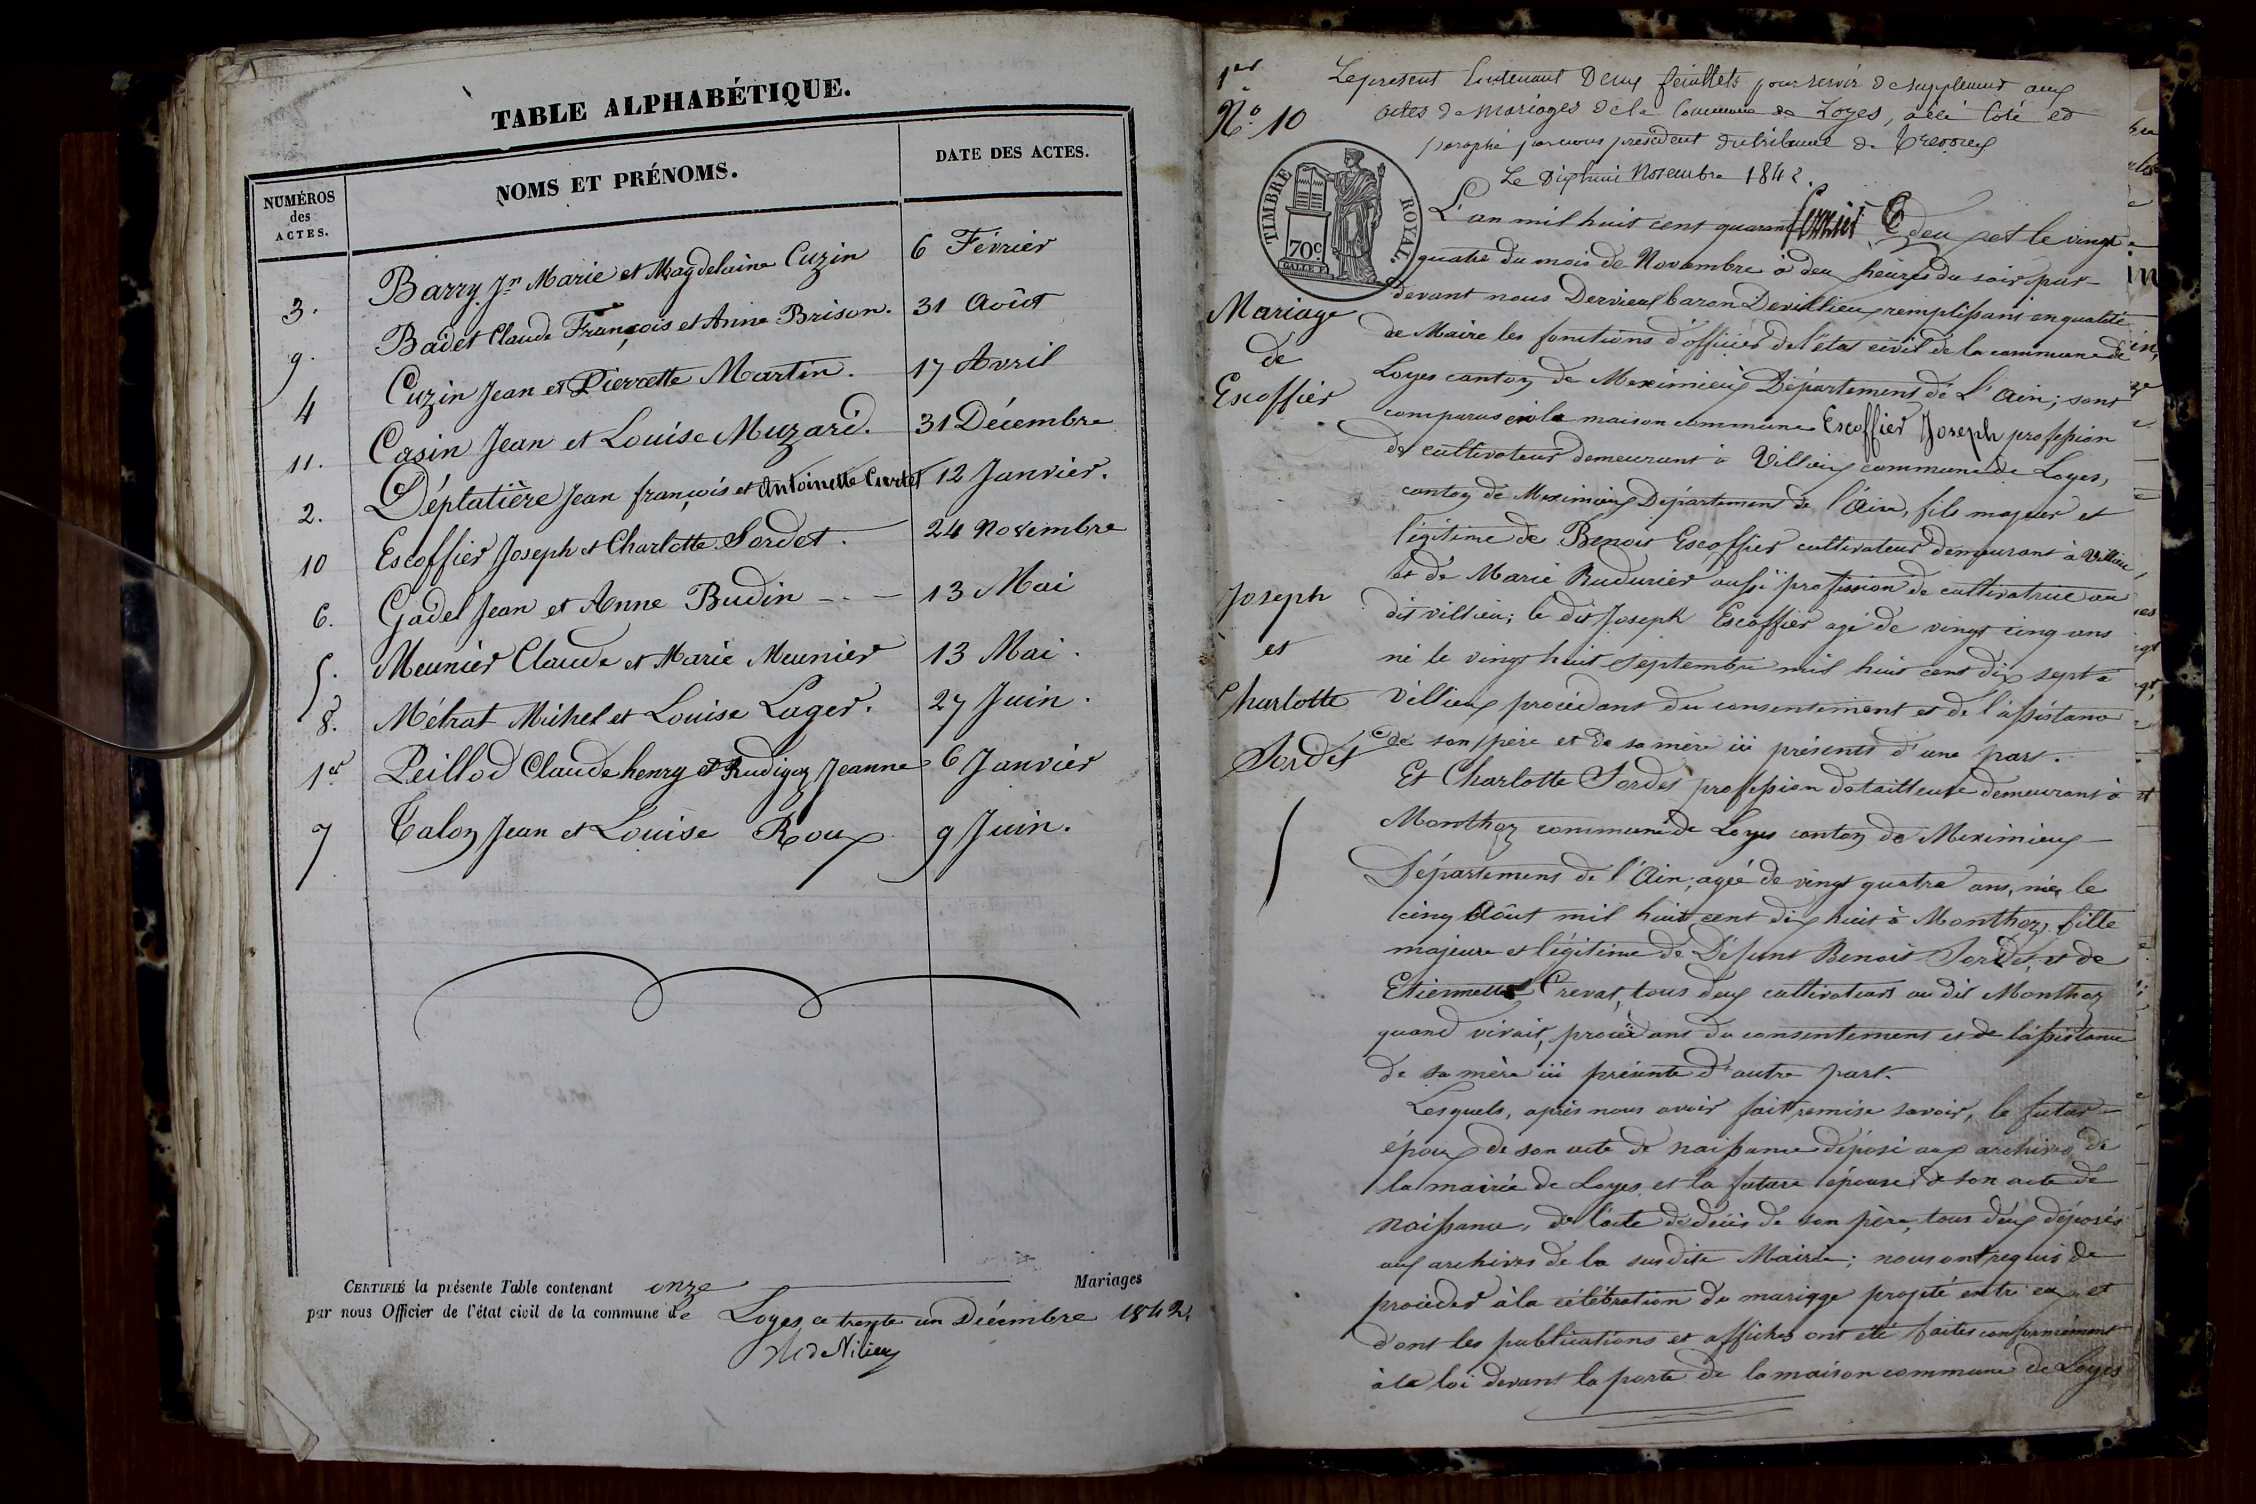 TABLE ALPHABÉTIQUE.
NUMÉROS
des
ACTES.
NOMS ET PRÉNOMS.
DATE DES ACTES.
3. Barry Jn Marie et Magdelaine Cuzin 6 Février
9. Badet Claude François et Anne Brison. 31 Août
4 Cuzin Jean et Pierrette Martin. 17 Avril
11. Casin Jean et Louise Muzard. 31 Décembre
2. Déplatière Jean françois et Antoinette Curtet 12 Janvier.
10 Escoffier Joseph et Charlotte Sordet. 24 Novembre
6. Gadel Jean et Anne Budin 13 Mai
5. Meunier Claude et Marie Meunier 13 Mai.
8. Métrat Michel et Louise Lager. 27 Juin.
1er Peillod Claude henry et Rudigoz Jeanne 6 Janvier
7 Talon Jean et Louise Roux 9 Juin.
CERTIFIÉ la présente Table contenant onze Mariages
par nous Officier de l'état civil de la commune de Loyes ce trente un Décembre 1842
1er
No 10
Le présent contenant Deux feuillets pour servir de supplement aux
actes de mariages de la Commune de Loyes, a été coté et
paraphé par nous président du tribunal de Trevoux
Le Dix huit Novembre 1842.
TIMBRE ROYAL
70c
Mariage
de
Escoffier
Joseph
et
Charlotte
Sordet
L'an mil huit cent quarante deux et le vingt
quatre du mois de Novembre à deux heures du soir par-
devant nous Dervieu baron Devillieu remplissant en qualité
de Maire les fonctions d'officier de l'état civil de la commune de
Loyes canton de Meximieux Département de L'Ain; sont
comparus en la maison commune Escoffier Joseph profession
de cultivateur demeurant à Villieu commune de Loyes,
canton de Meximieux Département de l'Ain, fils majeur et
légitime de Benoit Escoffier cultivateur demeurant à Villieu
et de Marie Rudurier aussi profession de cultivatrice au
dit villieu; le dit Joseph Escoffier agé de vingt cinq ans
né le vingt huit Septembre mil huit cent dix sept à
Villieux procédant du consentement et de l'assistance
de son père et de sa mère ici présents d'une part.
Et Charlotte Sordet profession de tailleuse demeurant à
Monthoz commune de Loyes canton de Meximieux
Département de l'Ain; agée de vingt quatre ans, née le
cinq Août mil huit cent dix huit à Monthoz, fille
majeure et légitime de Défunt Benoit Sordet, et de
Etiennette Crevat, tous deux cultivateurs au dit Monthoz
quand vivait, procédant du consentement et de l'assistance
de sa mère ici présente d'autre part.
Lesquels, après nous avoir fait remise savoir, le futur
époux de son acte de naissance déposé aux archives de
la mairie de Loyes et la future épouse de son acte de
naissance, de l'acte de décès de son père, tous deux déposés
aux archives de la susdite Mairie; nous ont requis de
procéder à la célébration du mariage projeté entre eux et
dont les publications et affiches ont été faites conformément
à la loi devant la porte de la maison commune de Loyes